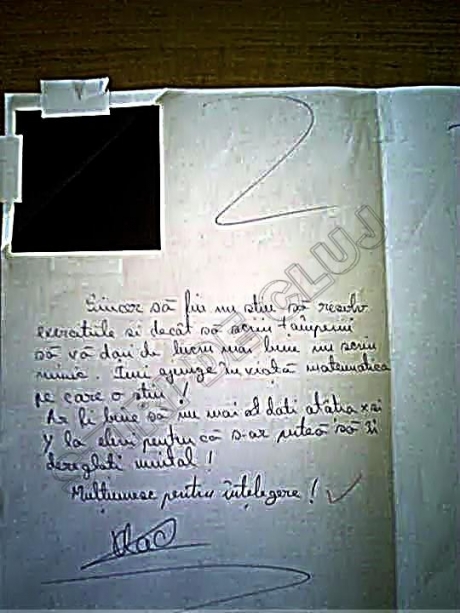 2
Sincer să fiu nu stiu să rezolv
exercitiile si decât să scriu tâmpenii
să vă dau de lucru mai bine nu scriu
nimic. Imi ajunge în viată matematica
pe care o stiu !
Ar fi bine să nu mai dati atâtia x si
y la elevi pentru că s-ar putea să ii
dereglati mintal !
Multumesc pentru înțelegere !
CLUJ